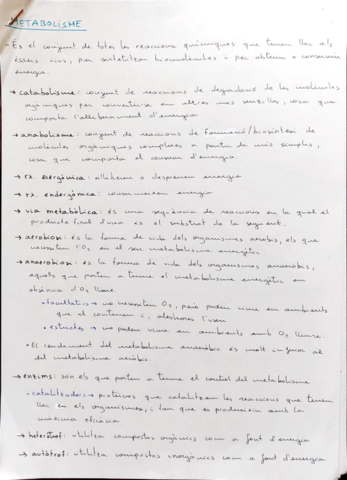 METABOLISME
- És el conjunt de totes les reaccions químiques que tenen lloc als
éssers vius, per sintetitzar biomolècules i per obtenir o consumir
energia.
→ catabolisme: conjunt de reaccions de degradació de les molècules
orgàniques per convertir-se en altres més senzilles, cosa que
comporta l'alliberament d'energia
→ anabolisme: conjunt de reaccions de formació/biosíntesi de
molècules orgàniques complexes a partir de més simples,
cosa que comporta el consum d'energia.
→ rx. exergònica: alliberen o desprenen energia
→ rx. endergònica: consumeixen energia
→ via metabòlica: és una seqüència de reaccions en la qual el
producte final d'una és el substrat de la següent.
→ aerobiosi: és la forma de vida dels organismes aerobis, els que
necessiten l'O₂ en el seu metabolisme energètic
→ anaerobiosi: és la forma de vida dels organismes anaerobis,
aquells que porten a terme el metabolisme energètic en
absència d'O₂ lliure.
• facultatius → no necessiten O₂, però poden viure en ambients
que el contenen i, aleshores l'usen.
• estrictes → no poden viure en ambients amb O₂ lliure.
• El rendiment del metabolisme anaeròbic és molt inferior al
del metabolisme aeròbic.
→ enzims: són els que porten a terme el control del metabolisme
• catalitzadors → proteïnes que catalitzen les reaccions que tenen
lloc en els organismes, i fan que es produeixin amb la
màxima eficàcia
→ heteròtrof: utilitza compostos orgànics com a font d'energia
→ autòtrof: utilitza compostos inorgànics com a font d'energia